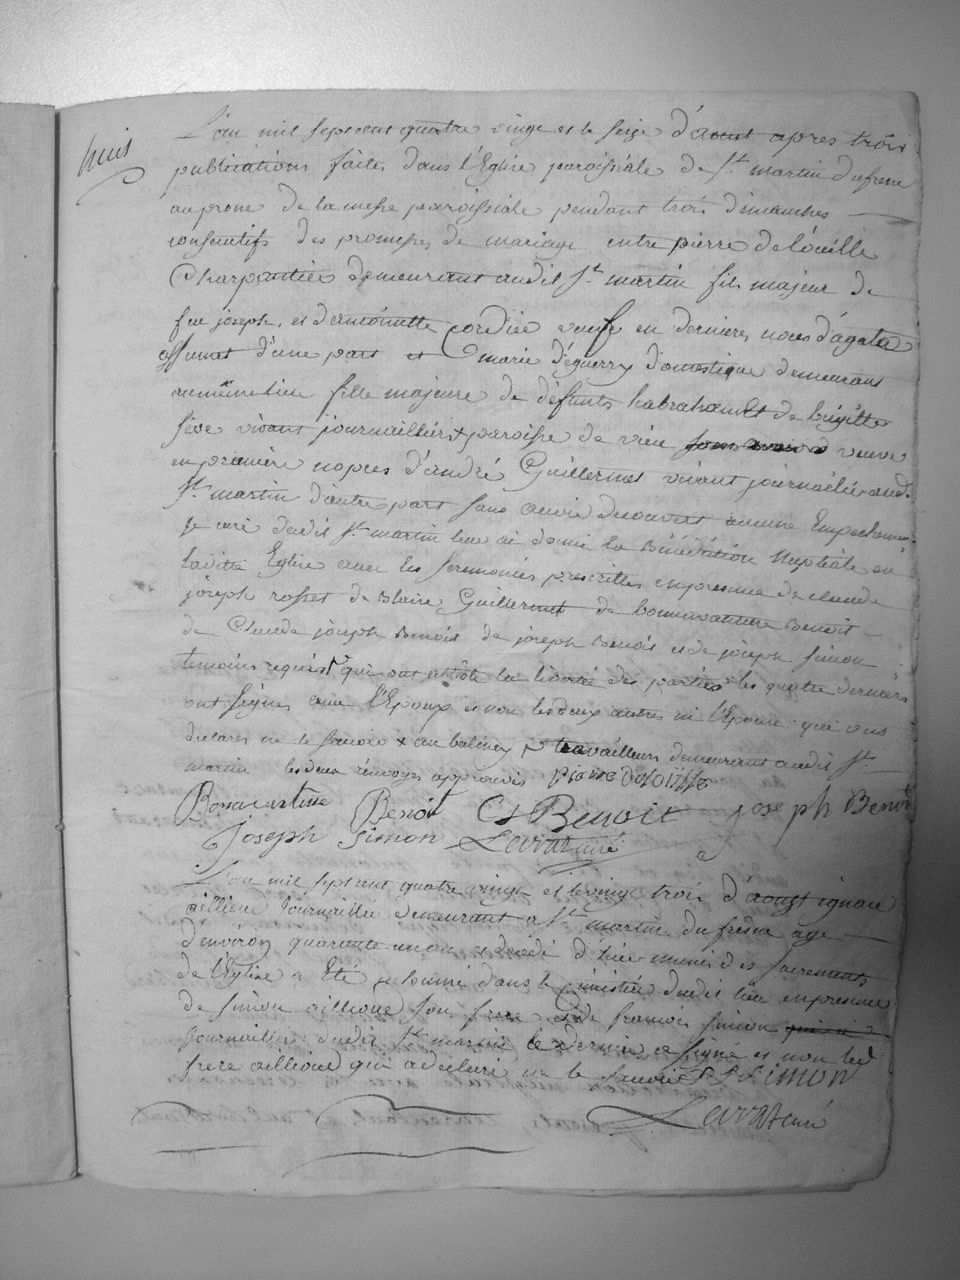 huit
L'an mil sept cent quatre vingt et le seize d'aoust apres trois
publications faites dans l'Eglise paroissiale de St. martin du fresne
au prone de la messe paroissiale pendant trois dimanches
consecutifs des promesses de mariage entre pierre deloeille
Charpentier demeurant audit St. martin fils majeur de
feu joseph, et d'antoinette cordier veuf en dernieres noces d'agathe
d'une part et marie d'éguerry domestique demeurant
au même lieu fille majeure de défunts habraham et de brigitte
seve vivant journaillers paroisse de vieu veuve
en premiere nopces d'andré Guillermet vivant journalier aud.
St. martin d'autre part sans avoir decouvert aucun Empechement
je curé dudit St. martin leur ai donné la Bénédiction Nuptiale en
laditte Eglise avec les ceremonies prescrittes en presence de claude
joseph rosset de blaise Guillermet de bonnaventure benoit
de Claude joseph benoit de joseph benoit et de joseph simon
temoins requis qui ont attesté la liberté des parties les quatre derniers
ont signes avec l'Epoux et non les deux autres ni l'Epouse qui ont
declares ne le savoir x travailleurs demeurant audit St.
martin les deux renvoyes approuvés Pierre
Bonnaventure Benoit CJ Benoit joseph Benoit
Joseph Simon Levrat curé
L'an mil sept cent quatre vingt et le vingt trois d'aoust ignace
aillioud Journallier demeurant a St. martin du fresne age
d'environ quarante un an est decedé d'hier muni des sacrements
de l'Eglise a Eté inhumé dans le cimistière dudit lieu en presence
de simon aillioud son frere et de francois simon
journalier dudit St. martin le dernier a signé et non led
frere aillioud qui a declaré ne le savoir F Simon
Levrat curé